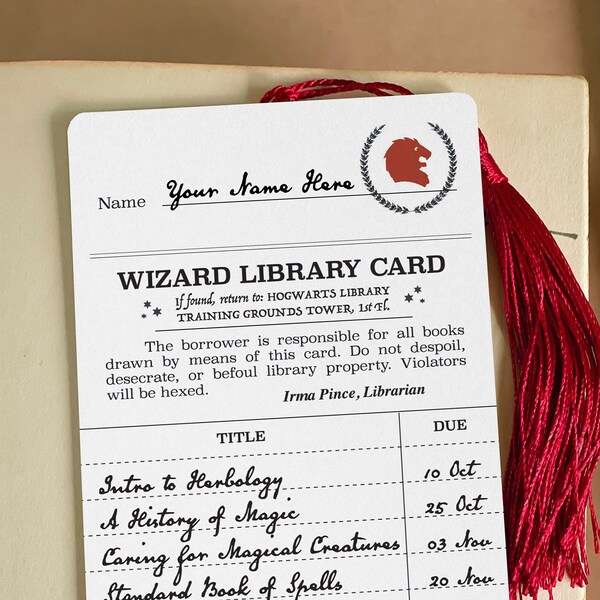 Name Your Name Here
WIZARD LIBRARY CARD
If found, return to: HOGWARTS LIBRARY
TRAINING GROUNDS TOWER, 1st Fl.
The borrower is responsible for all books
drawn by means of this card. Do not despoil,
desecrate, or befoul library property. Violators
will be hexed.
Irma Pince, Librarian
TITLE DUE
Intro to Herbology 10 Oct
A History of Magic 25 Oct
Caring for Magical Creatures 03 Nov
Standard Book of Spells 20 Nov